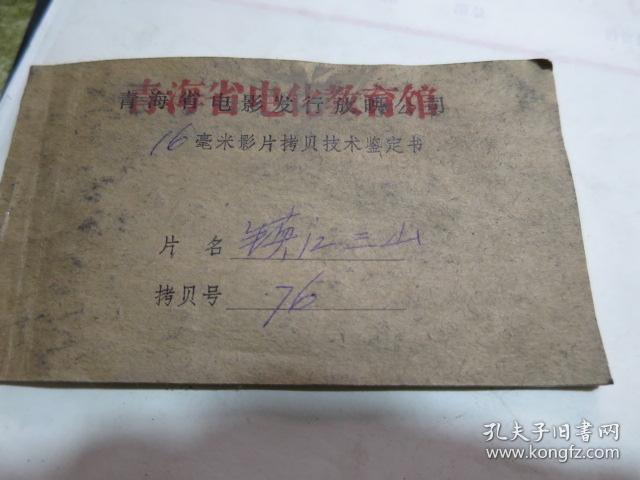 青海省电化教育馆
青海省电影发行放映公司
16毫米影片拷贝技术鉴定书
片名 镇江三山
拷贝号 76
孔夫子旧书网
www.kongfz.com